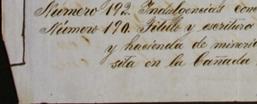 Número 192. Indulgencias con
Número 190. Título y escritura
y hacienda de minería
sita en la Cañada